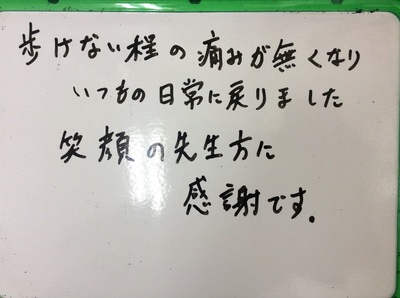 歩けない程の痛みが無くなり
いつもの日常に戻りました
笑顔の先生方に
感謝です.